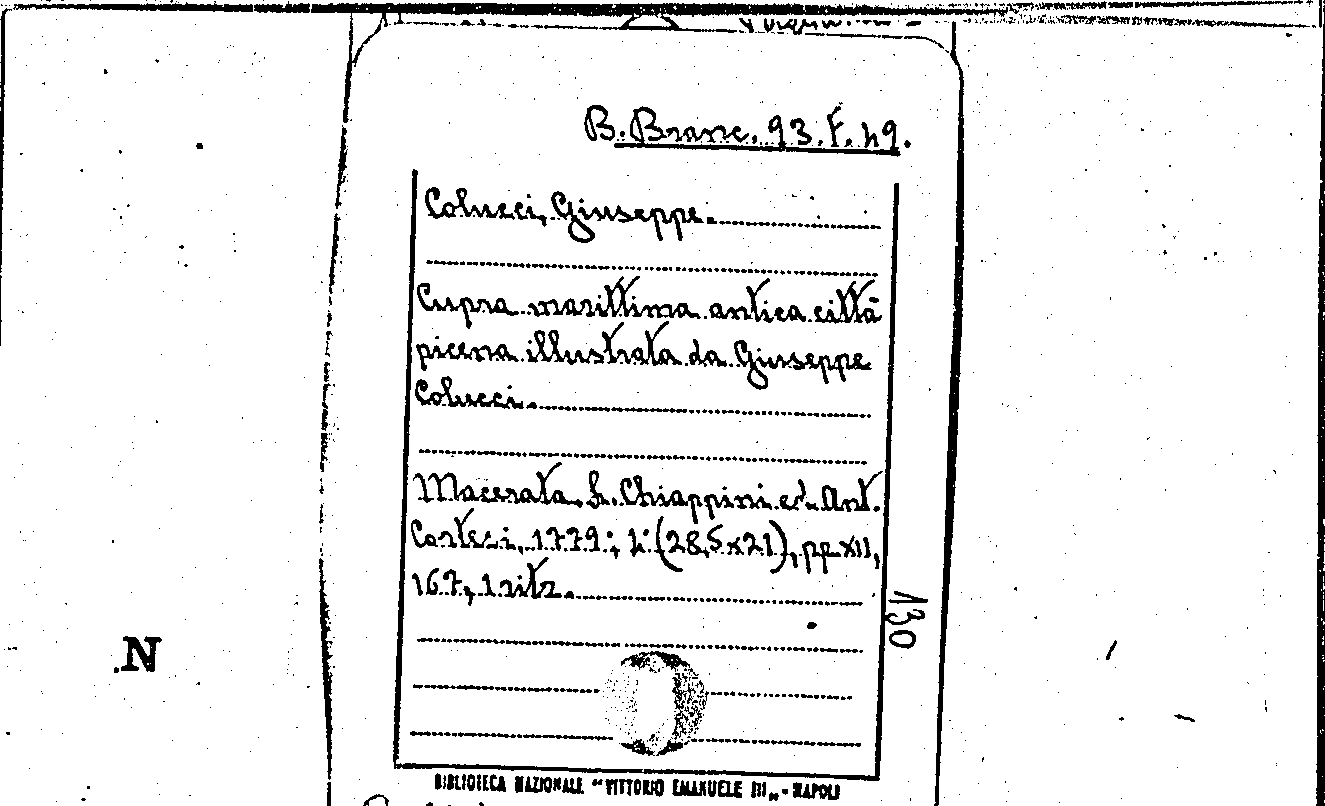 B. Branc. 93. F. 49.
Colucci, Giuseppe.
Cupra marittima antica città
picena illustrata da Giuseppe
Colucci.
Macerata, L. Chiappini ed Ant.
Cortesi, 1779; 4° (28,5x21), pp. XII,
167, 1 ritr.
130
N
BIBLIOTECA NAZIONALE "VITTORIO EMANUELE III" - NAPOLI